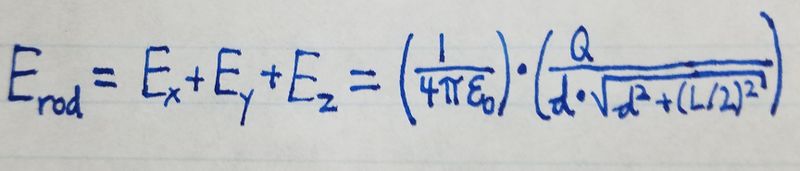 E_rod = E_x + E_y + E_z = (1/4πε₀)·(Q/d·√d² + (L/2)²)